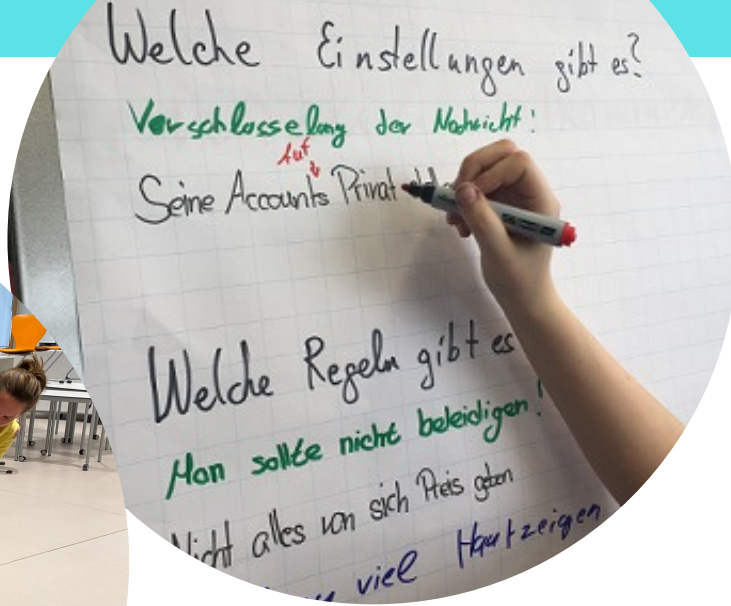 Welche Einstellungen gibt es?
Verschlosselung der Nachricht:
Auf
Seine Accounts Privat
Welche Regeln gibt es
Man sollte nicht beleidigen!
Nicht alles von sich Preis geben
viel Hautzeigen